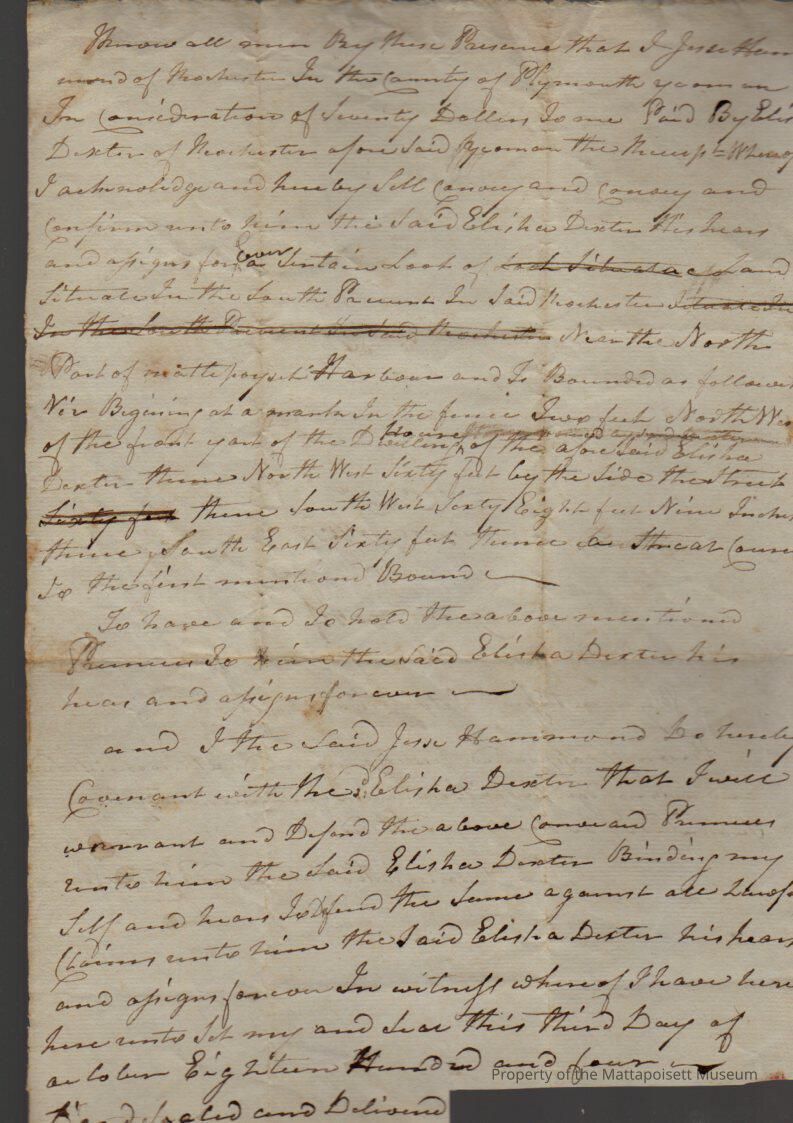 Know all men By these Presence that I Jesse Ham
mond of Rochester In the County of Plymouth yeoman
In Consideration of Seventy Dollers To me Paid By Elis
Dexter of Rochester afore Said yeoman the Wherof
I acknoledge and hereby Sell Convey and Convey and
Confirm unto him the Said Elisha Dexter His hears
and assigns for Ever a Sertain Loot of Land
Situate In the South Precinct In Said Rochester Situate In
In the South Precinct In Said Rochester Near the North
Part of Harbour and Is Bounded as follows
Viz Bigining at a mark In the fence Two feet North Wes
of the front yart of the Dwelling House of the afore Said Elisha
Dexter thence North West Sixty feet by the Side the Street
Sixty feet thence South West Sixty Eight feet Nine Inches
thence South East Sixty feet thence a Streat Course
To the first mentiond Bound
To have and To hold the above mentioned
Premises To him the Said Elisha Dexter his
hears and assigns forever
and I the Said Jesse Hammond Do hereby
Covenant with the Sd Elisha Dexter that I will
warrant and Defend the above Premises
unto him the Said Elisha Dexter Binding my
Self and hears To Defend the Same against all Lawf
Claims unto him the Said Elisha Dexter his hears
and assigns forever In witness where of I have here
here unto Set my and Seal this third Day of
October Eighteen Hundred and four
Sealed and Deliverd
Property of the Mattapoisett Museum